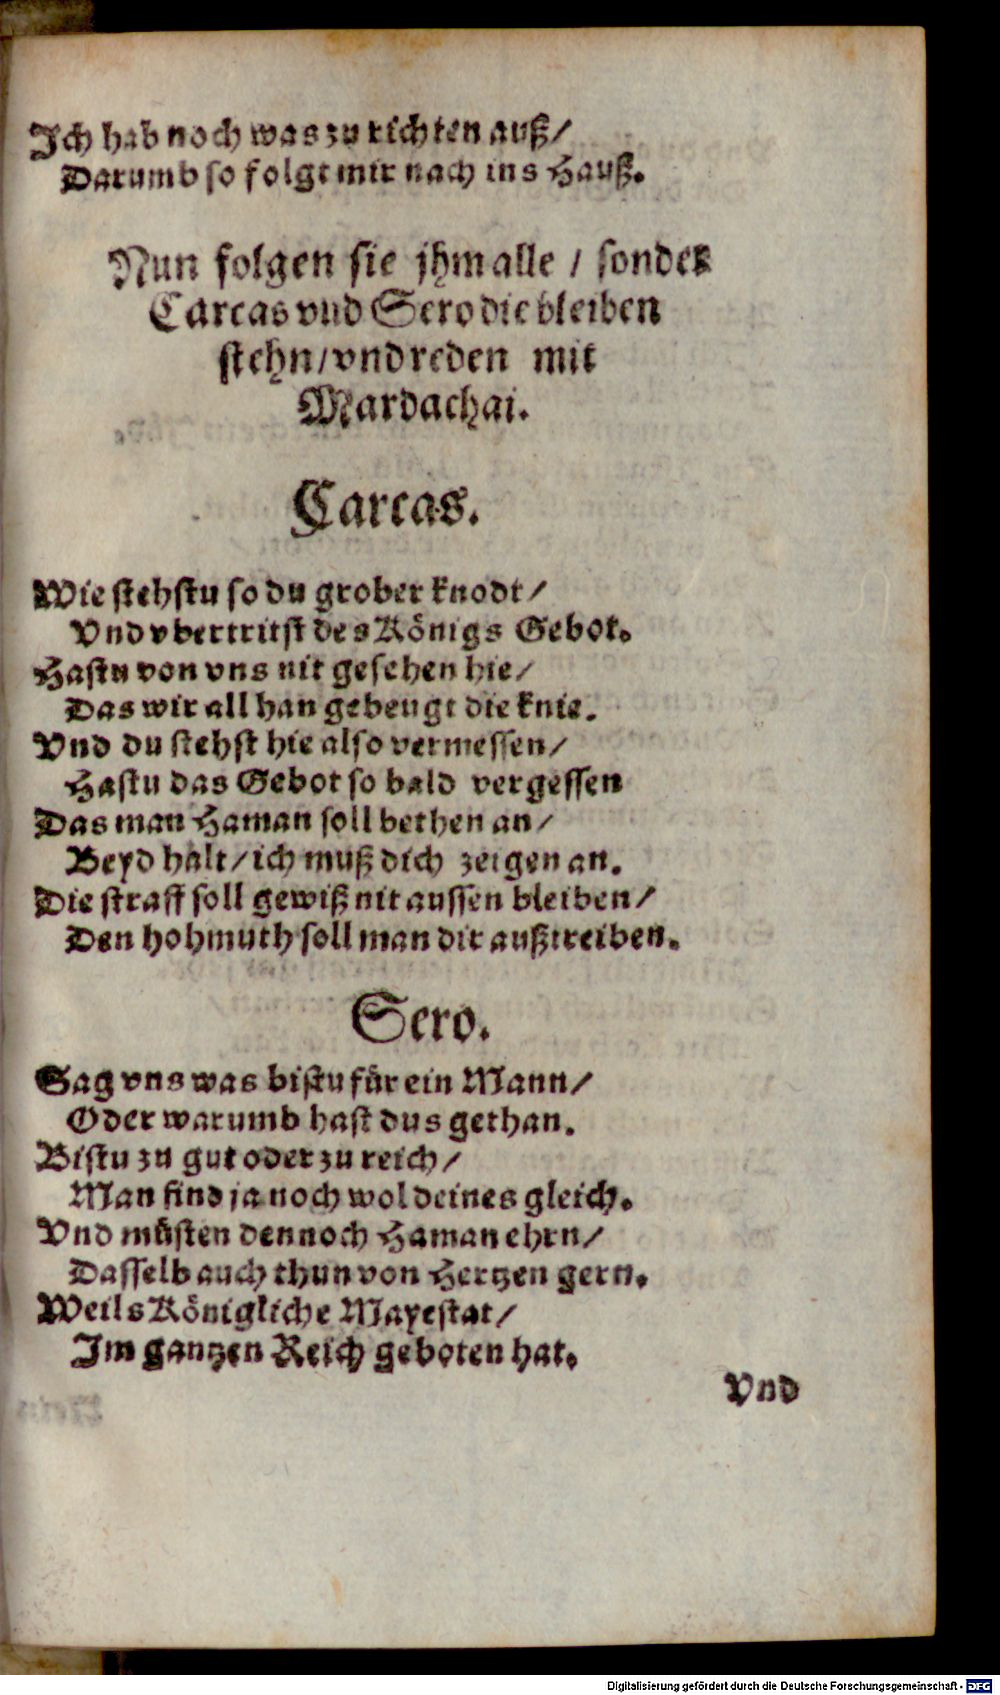 Ich hab noch was zu richten auß/
Darumb so folgt mir nach ins Hauß.
Nun folgen sie jhm alle / sonder
Carcas vnd Sero die bleiben
stehn/ vnd reden mit
Mardachai.
Carcas.
Wie stehstu so du grober knodt/
Vnd vbertritst des Königs Gebot.
Hastu von vns nit gesehen hie/
Das wir all han gebeugt die knie.
Vnd du stehst hie also vermessen/
Hastu das Gebot so bald vergessen
Das man Haman soll bethen an/
Beyd halt/ ich muß dich zeigen an.
Die straff soll gewiß nit aussen bleiben/
Den hohmuth soll man dir außtreiben.
Sero.
Sag vns was bistu für ein Mann/
Oder warumb hast dus gethan.
Bistu zu gut oder zu reich/
Man find ja noch wol deines gleich.
Vnd müsten dennoch Haman ehrn/
Dasselb auch thun von Hertzen gern.
Weils Königliche Mayestat/
Im gantzen Reich geboten hat.
Vnd
Digitalisierung gefördert durch die Deutsche Forschungsgemeinschaft - DFG